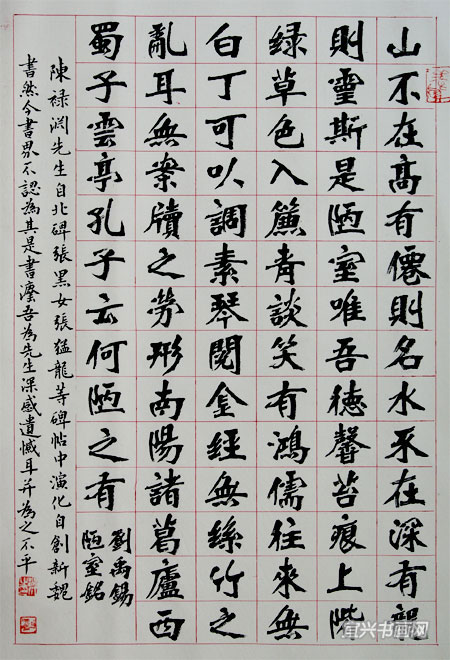 山不在髙有僊則名水不在深有龍
則靈斯是陋室唯吾德馨苔痕上階
绿草色入簾青談笑有鴻儒往來無
白丁可以調素琴閱金經無絲竹之
亂耳無案牘之勞形南陽諸葛廬西
蜀子雲亭孔子云何陋之有
劉禹錫
陋室銘
陳禄渊先生自北碑張黑女張猛龍等碑帖中演化自創新魏
書然今書界不認為其是書麼吾為先生深感遺憾耳并為之不平
宜兴书画网